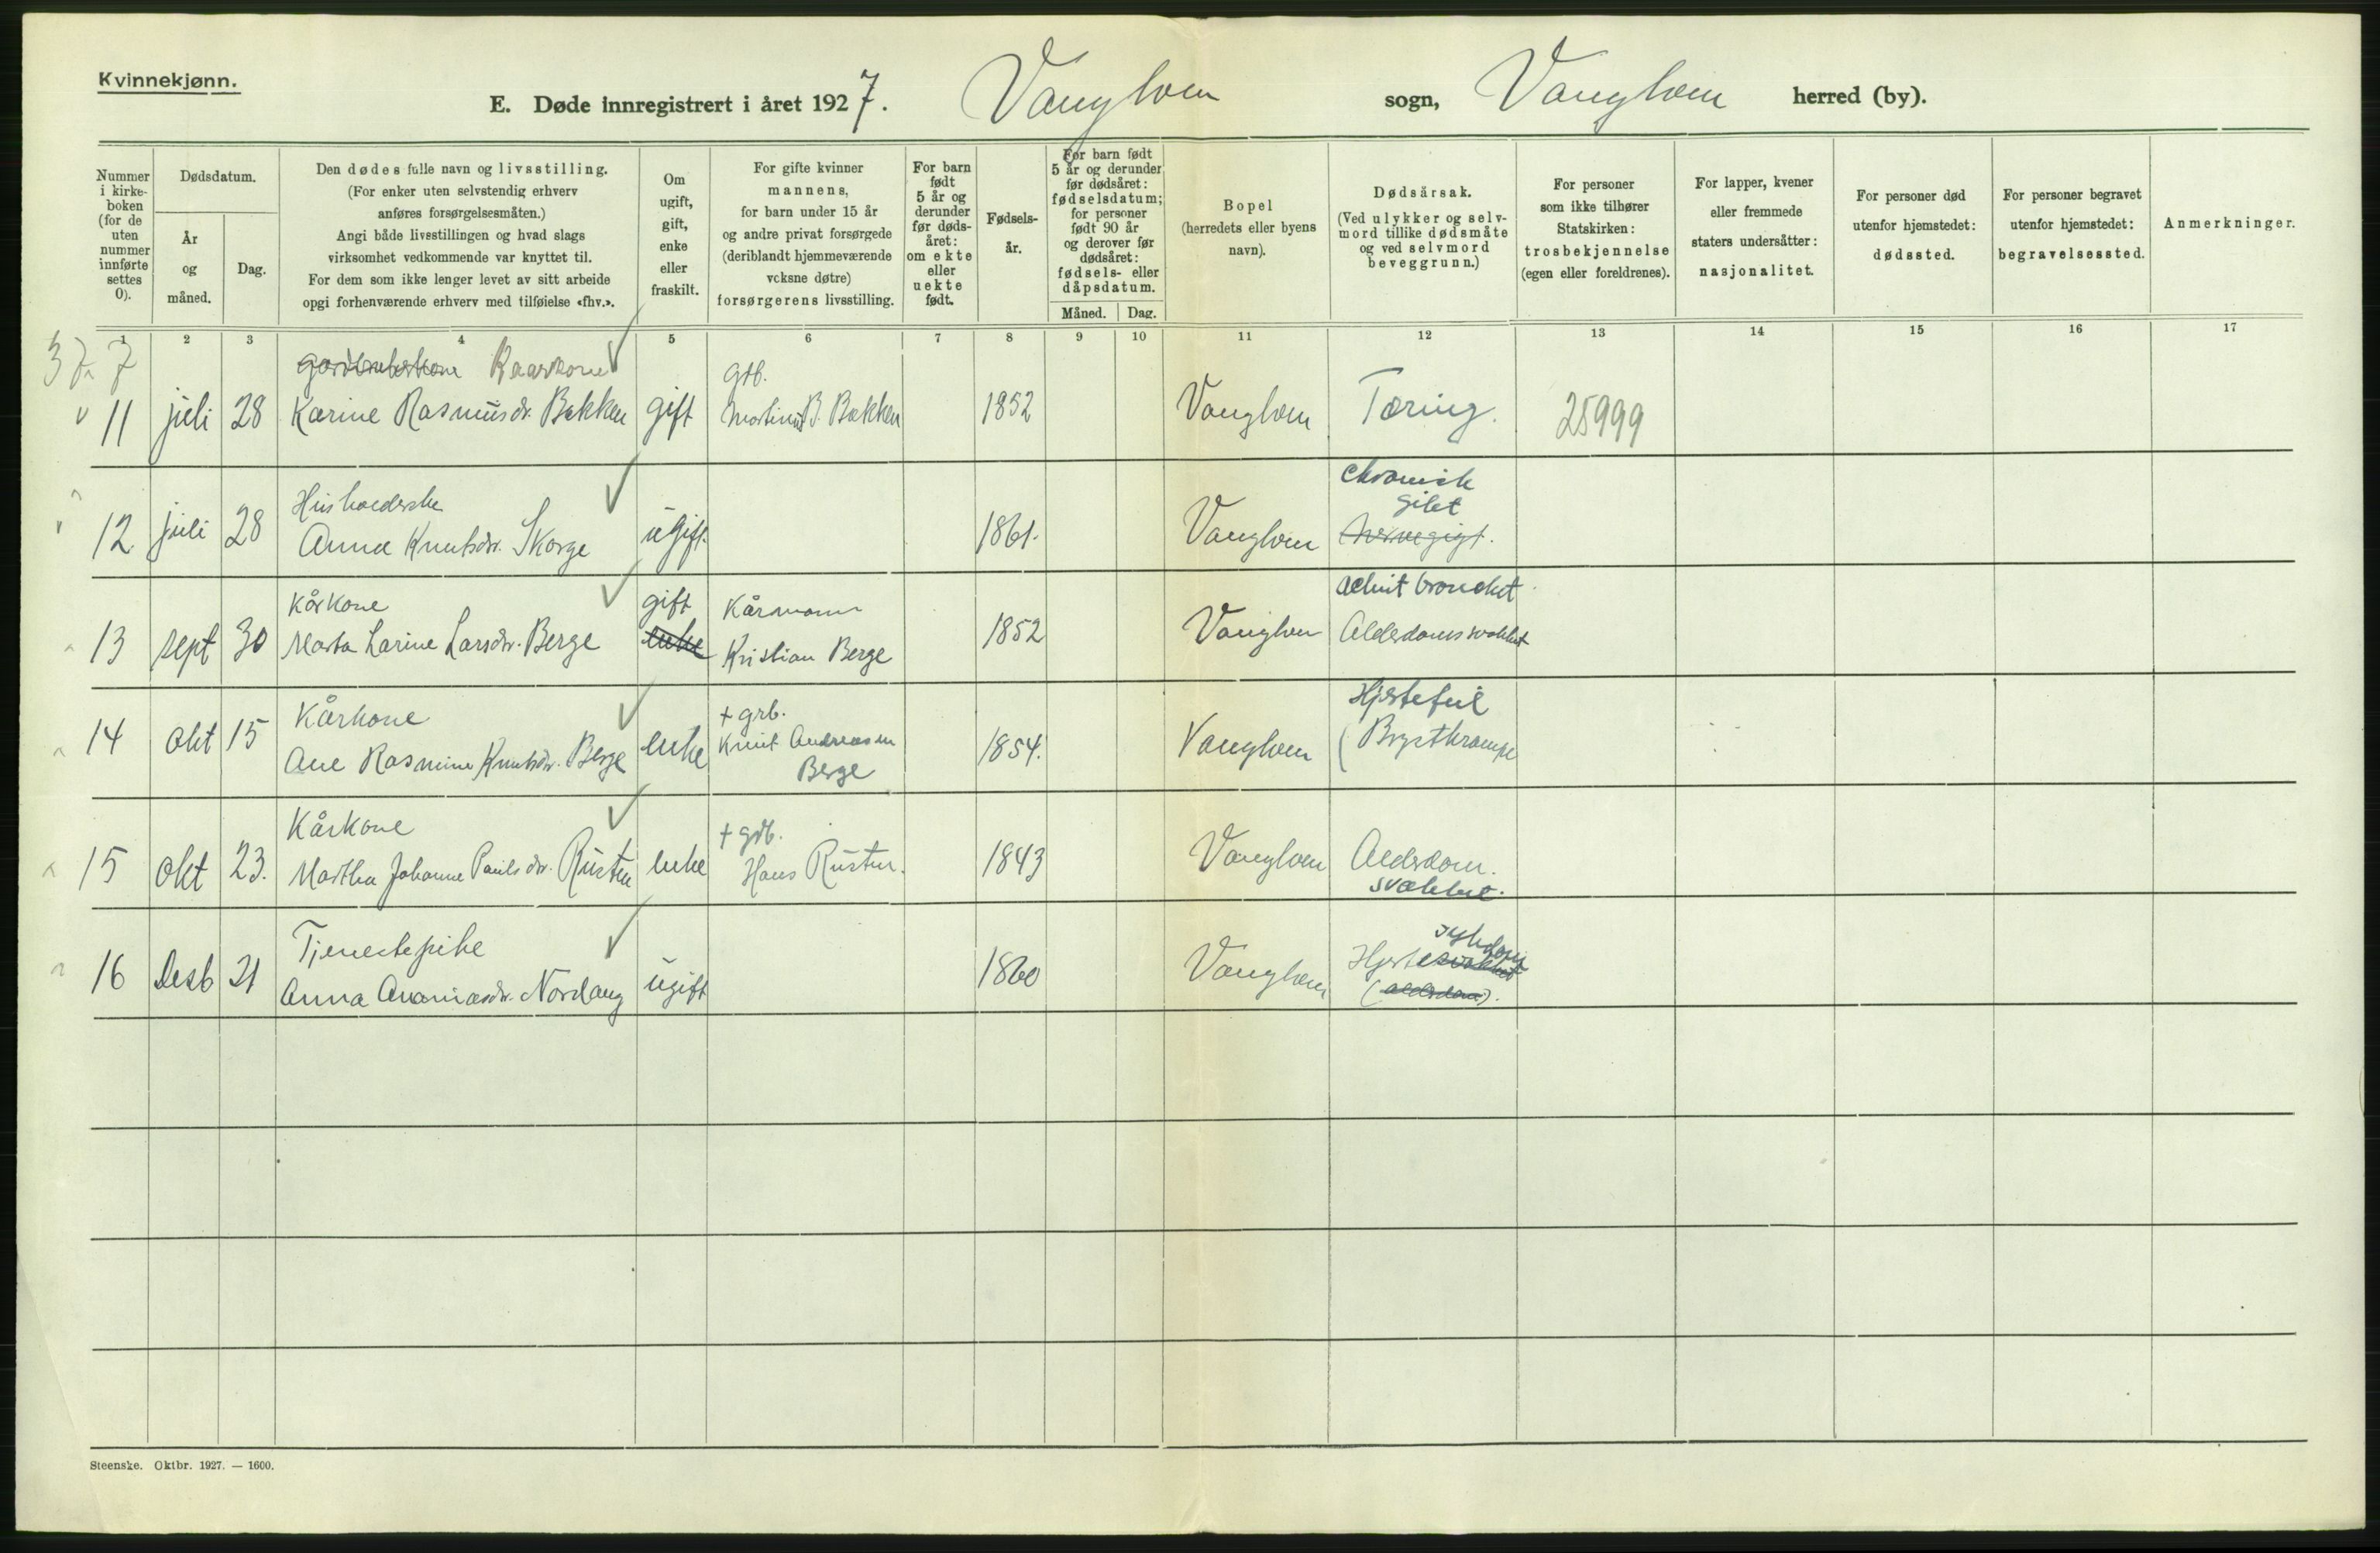 Kvinnekjønn.
E. Døde innregistrert i året 1927. Vanylven sogn, Vanylven herred (by).
Nummer i kirke-boken (for de uten nummer innførte settes 0).
Dødsdatum.
År og måned.
Dag.
Den dødes fulle navn og livsstilling.
(For enker uten selvstendig erhverv
anføres forsørgelsesmåten.)
Angi både livsstillingen og hvad slags
virksomhet vedkommende var knyttet til.
For dem som ikke lenger levet av sitt arbeide
opgi forhenværende erhverv med tilføielse «fhv.».
Om ugift, gift, enke eller fraskilt.
For gifte kvinner
mannens,
for barn under 15 år
og andre privat forsørgede
(deriblandt hjemmeværende
vcksne døtre)
forsørgerens livsstilling.
For barn født 5 år og derunder før døds-året: om ekte eller uekte født.
Fødsels-år.
For barn født
5 år og derunder
før dødsåret:
fødselsdatum;
for personer
født 90 år
og derover før
dødsåret:
fødsels- eller
dåpsdatum.
Måned. Dag.
Bopel
(herredets eller byens
navn).
Dødsårsak.
(Ved ulykker og selv-
mord tillike dødsmåte
og ved selvmord
beveggrunn.)
For personer
som ikke tilhører
Statskirken:
trosbekjennelse
(egen eller foreldrenes).
For lapper, kvener
eller fremmede
staters undersåtter:
nasjonalitet.
For personer død
utenfor hjemstedet:
dødssted.
For personer begravet
utenfor hjemstedet:
begravelsessted.
Anmerkninger.
1 2 3 4 5 6 7 8 9 10 11 12 13 14 15 16 17
Gardbrukerkone Kaarkone
grb.
11 juli 28 Karine Rasmusdr. Bakken gift Martinus B. Bakken 1852 Vanylven Tæring. 25999
Husholderske
chronisk
gikt
12 juli 28 Anna Knutsdr. Skorge ugift. 1861. Vanylven Nervegigt.
Kårkone gift Kårmann
Akut bronchit
13 sept 30 Marta Larine Larsdr. Berge enke Kristian Berge 1852 Vanylven Alderdomssvakhet
Kårkone + grb.
Hjertefeil
14 okt 15 Ane Rasmine Knutsdr. Berge enke Knut Andreassen Berge 1854. Vanylven (Brystkrampe
Kårkone + grb.
15 okt 23. Martha Johanne Paulsdr. Rusten enke Hans Rusten. 1843 Vanylven Alderdom.
svakhet.
Tjenestepike
sykdom
16 Desb 21 Anna Ananiasdr. Nordang ugift 1860 Vanylven Hjertesvakhet
(alderdom).
Steenske. Oktbr. 1927. — 1600.